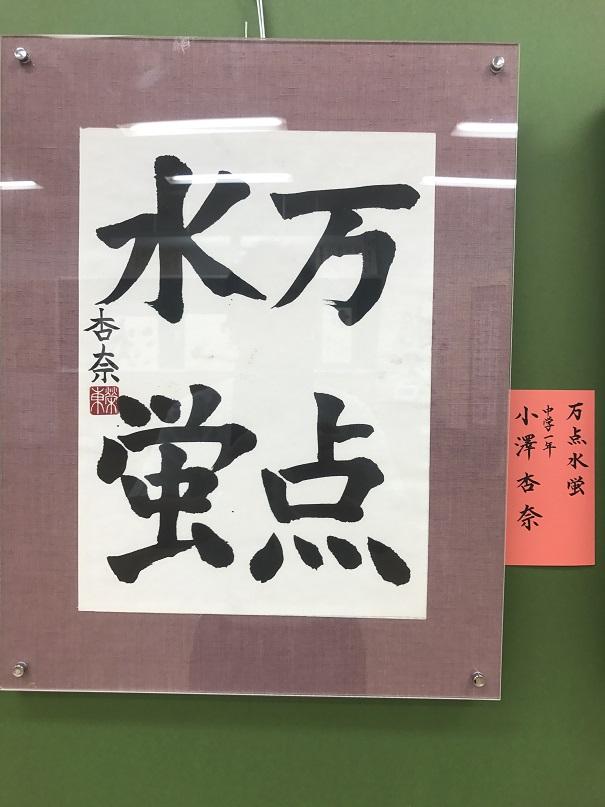 万点
水蛍
杏奈
万点水蛍
中学一年
小澤杏奈